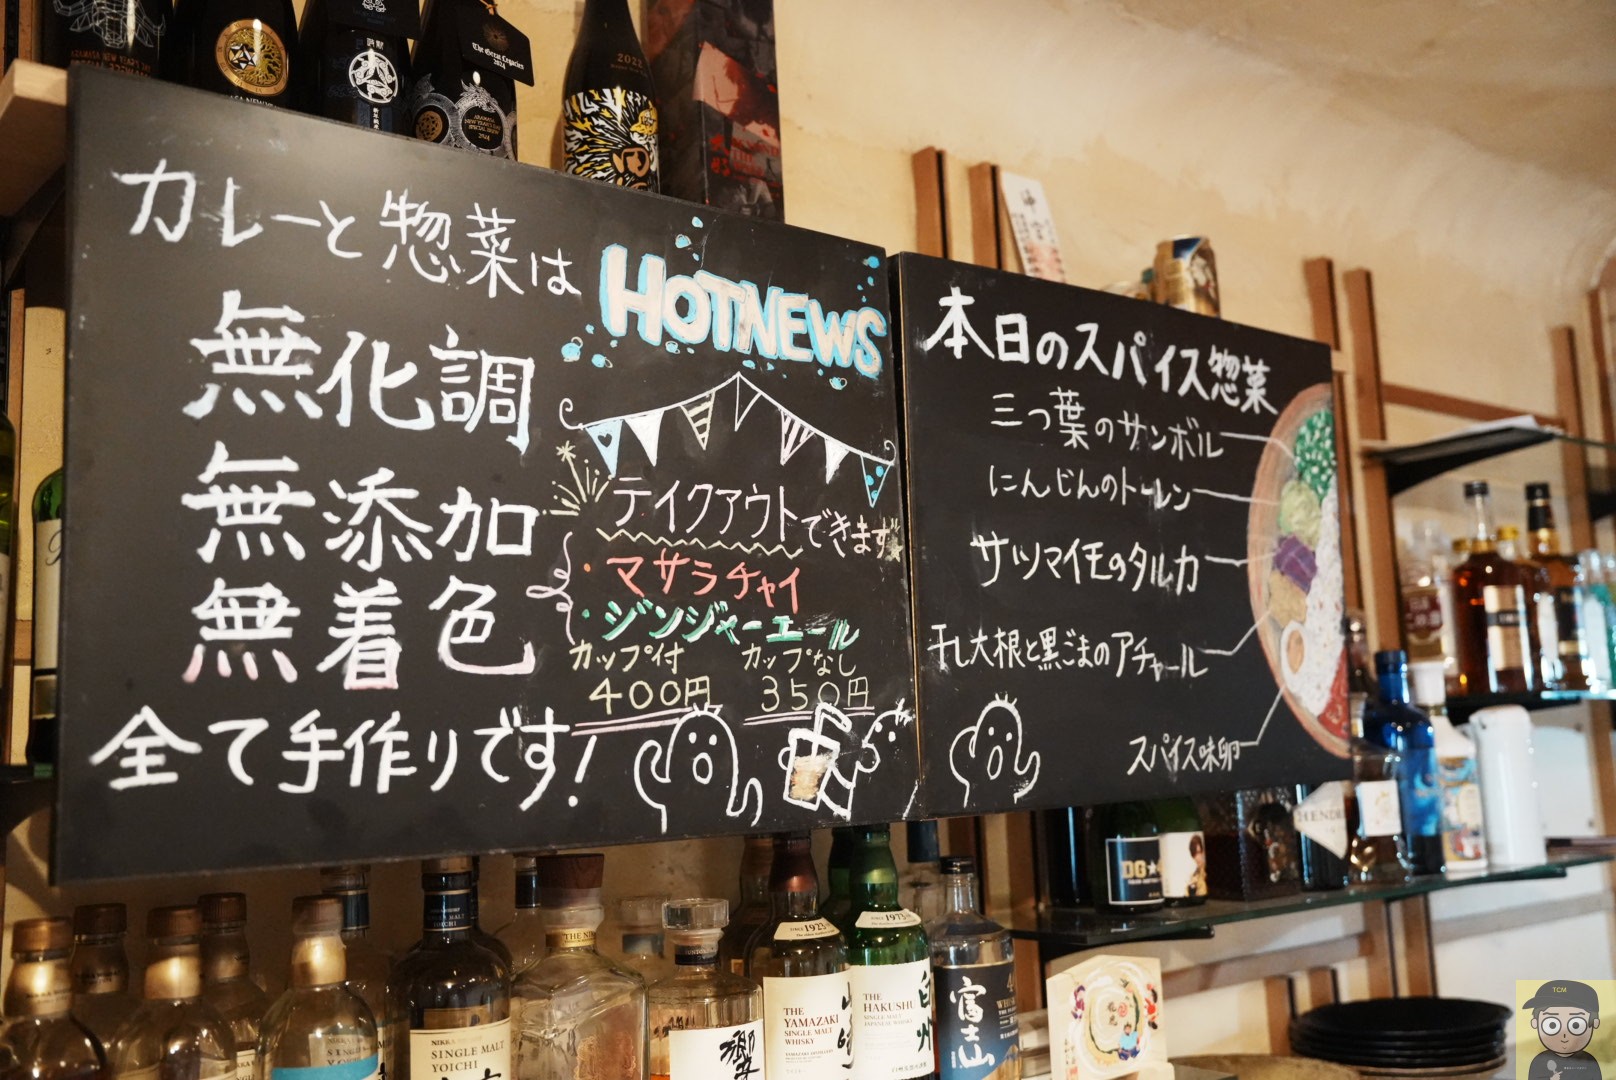 The Great Legacies
2024
2022
カレーと惣菜は
無化調
無添加
無着色
全て手作りです!
HOTNEWS
テイクアウトできます
・マサラチャイ
・ジンジャーエール
カップ付 カップなし
400円 350円
本日のスパイス惣菜
三つ葉のサンボル
にんじんのトーレン
サツマイモのタルカ
干し大根と黒ごまのアチャール
スパイス味卵
SINGLE MALT
YOICHI
響
SINCE 1923
THE
YAMAZAKI
SINGLE MALT
WHISKY
山崎
SINCE 1973
THE
HAKUSHU
SINGLE MALT
JAPANESE WHISKY
白州
富士山
DG
HENDR
TCM